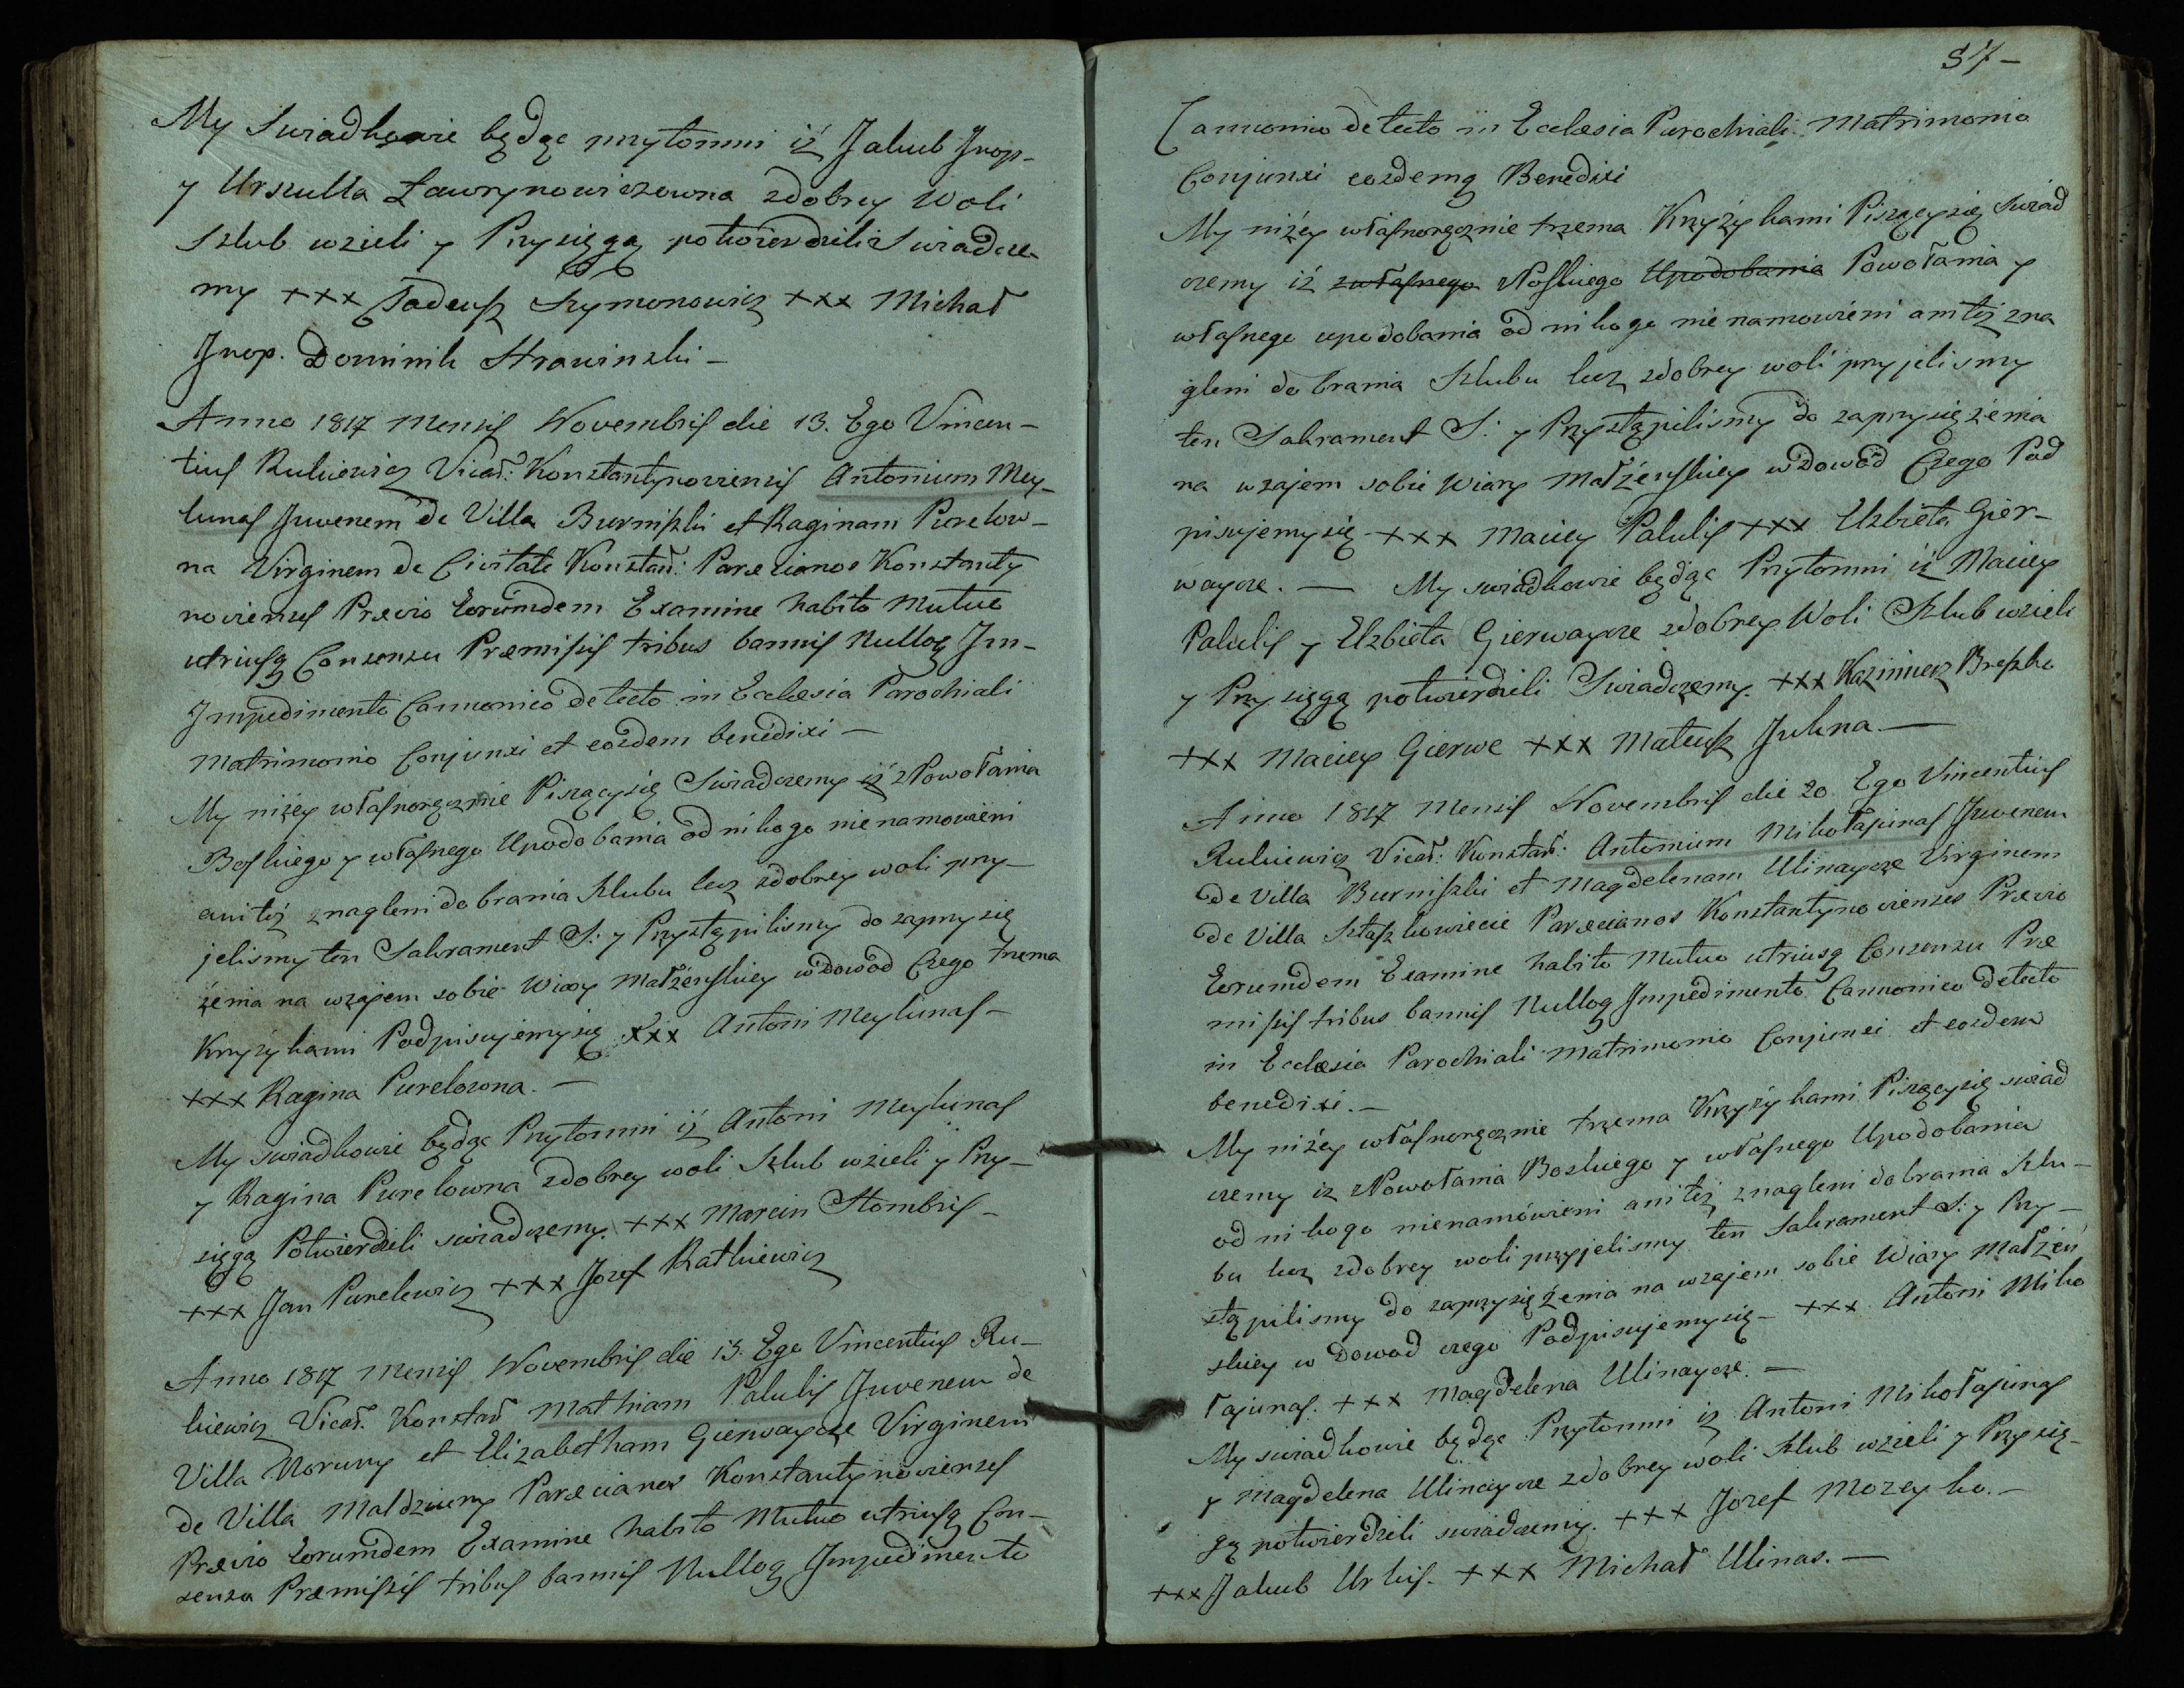 My Swiadkowie będąc przytomni iż Jakub Jnop-
y Urszulla Ławrynowiczowna zdobrey Woli
Szlub wzieli y Przysięgą potwierdzili Swiadcze-
my +++ Tadeusz Szymonowicz +++ Michał
Jnop. Dominik Strawinski -
Anno 1817 Mensis Novembris die 13. Ego Vincen-
tius Rukiewicz Vicar: Konstantynoviensis Antonium Mey-
lunas Juvenem de Villa Burniszki et Raginam Purelow-
na Virginem de Civitate Konstan: Paræcianos Konstanty
novienses Prævio Eorumdem Examine habito Mutuo
utriusq Consensu Præmissis tribus bannis Nulloq Im-
Jmpedimento Cannonico detecto in Ecclesia Parochiali
Matrimonio Conjunxi et eosdem benedixi -
My niżey własnoręcznie Pisząc się Swiadczemy iż z Powołania
Boskiego y własnego Upodobania od nikogo nie namowieni
ani też znagleni do brania Szlubu lecz zdobrey woli przy-
jelismy ten Sakrament S: y Przystąpilismy do zaprzysię
żenia na wzajem sobie Wiary Małżeńskiey w dowod Czego trzema
Krzyżykami Podpisujemy się +++ Antoni Meylunas -
+++ Ragina Purelowna. -
My swiadkowie będąc Przytomni iż Antoni Meylunas
y Ragina Purelowna zdobrey woli Szlub wzieli y Przy-
sięgą Potwierdzili swiadczemy. +++ Marcin Stombris -
+++ Jan Purelewicz +++ Jozef Ratkiewicz
Anno 1817 Mensis Novembris die 13. Ego Vincentius Ru-
kiewicz Vicar. Konstan Mathiam Palulis Juvenem de
Villa Noruny et Elizabetham Gierwaycze Virginem
de Villa Maldziuny Paræcianos Konstantynovienses
Prævio Eorumdem Examine habito Mutuo utriusq Con-
sensu Præmissis tribus bannis Nulloq Jmpedimento
87-
Cannonico detecto in Ecclesia Parochiali Matrimonio
Conjunxi eosdemq Benedixi
My niżey własnoręcznie trzema Krzyżykami Piszący się Swiad
czemy iż zwłasnego z Boskiego Upodobania Powołania y
własnego upodobania od nikogo nie namowieni ani też zna
gleni do brania Szlubu lecz zdobrey woli przyjelismy
ten Sakrament S: y Przystąpilismy do zaprzysiężenia
na wzajem sobie Wiary Małżeńskiey w dowod Czego Pod
pisujemy się - +++ Maciey Palulis +++ Elzbieta Gier-
waycze. - My swiadkowie będąc Przytomni iż Maciey
Palulis y Elzbieta Gierwaycze zdobrey Woli Szlub wzieli
y Przysięgą potwierdzili Swiadczemy. +++ Kazimierz Breszko
+++ Maciey Gierwe +++ Mateusz Jukna. -
Anno 1817 Mensis Novembris die 20 Ego Vincentius
Rukiewicz Vicar: Konstan: Antonium Mikołajunas Juvenem
de Villa Burniszki et Magdelenam Ulinaycze Virginem
de Villa Staszkowiecie Paræcianos Konstantynovienses Prævio
Eorumdem Examine habito Mutuo utriusq Consensu Præ
missis tribus bannis Nulloq Jmpedimento Cannonico detecto
in Ecclesia Parochiali Matrimonio Conjunxi et eosdem
benedixi. -
My niżey własnoręcznie trzema Krzyżykami Piszący się swiad
czemy iz z Powołania Boskiego y własnego Upodobania
od nikogo nienamówieni ani też znagleni do brania Szlu-
bu lecz zdobrey woli przyjelismy ten Sakrament S: y Przy-
stąpilismy do zaprzysiężenia na wzajem sobie Wiary Małżeń
skiey w Dowod czego Podpisujemy się - +++ Antoni Miko
łajunas. +++ Magdelena Ulinaycze. -
My swiadkowie będąc Przytomni iż Antoni Mikołajunas
y Magdelena Ulinaycze zdobrey woli Szlub wzieli y Przysię-
gą potwierdzili swiadczemy. +++ Jozef Mozeyko. -
+++ Jakub Urkis. +++ Michał Ulinas. -